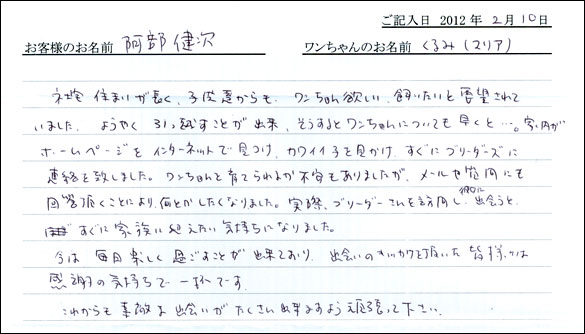 ご記入日 2012年 2月 10日
お客様のお名前 阿部 健次 ワンちゃんのお名前 くるみ(マリア)
社宅住まいが長く、子供達からも、ワンちゃん欲しい、飼いたいと要望されて
いました。ようやく引っ越すことが出来、そうするとワンちゃんについても早くと…。家内が
ホームページをインターネットで見つけ、カワイイ子を見かけ、すぐにブリーダーズに
連絡を致しました。ワンちゃんを育てられるか不安もありましたが、メールや質問にも
回答頂くことにより、何とかしたくなりました。実際、ブリーダーさんを訪問し、仔犬に出会うと、
すぐに家族に迎えたい気持ちになりました。
今は毎日楽しく過ごすことが出来ており、出会いのキッカケを頂いた皆様には
感謝の気持ちで一杯です。
これからも素敵な出会いがたくさん出来ますよう頑張って下さい。